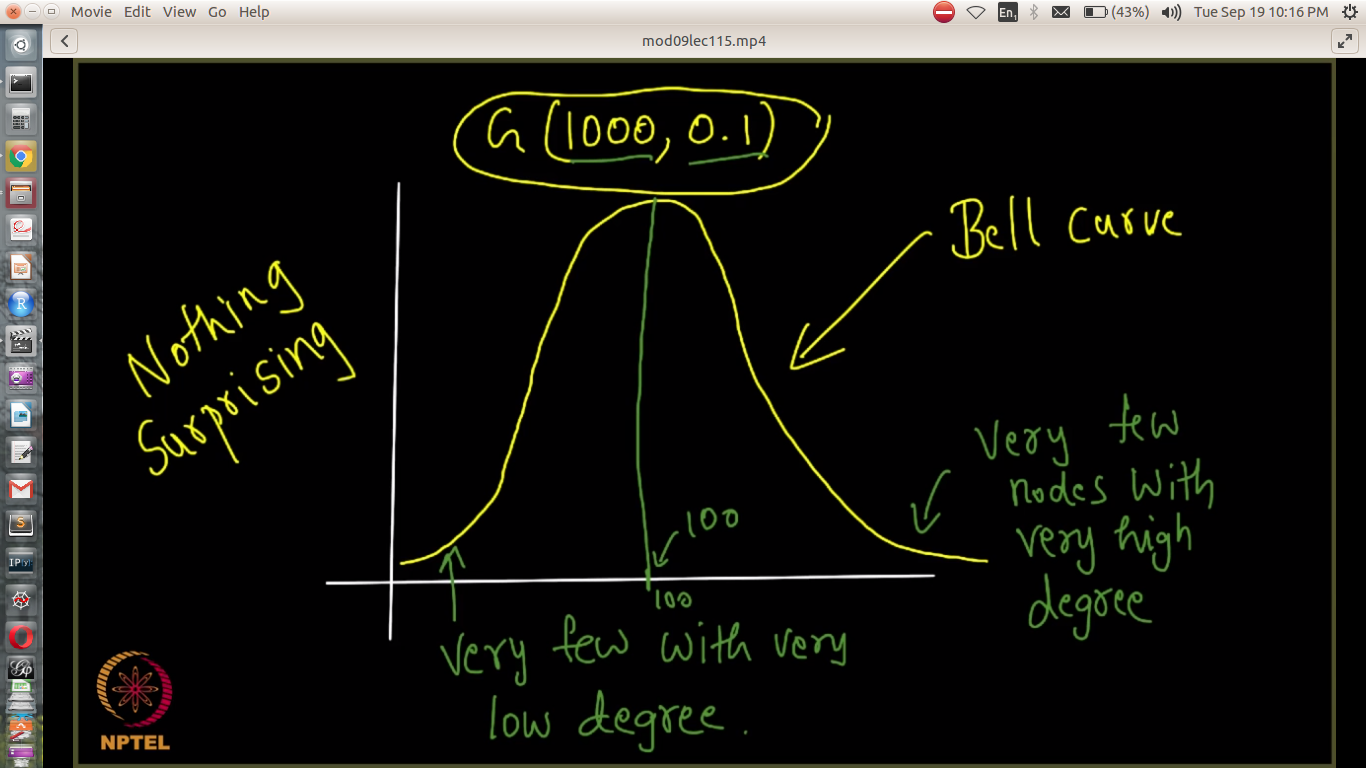 Movie Edit View Go Help
En1
(43%)
Tue Sep 19 10:16 PM
mod09lec115.mp4
G (1000, 0.1)
Bell curve
Nothing
Surprising
very few
nodes with
very high
degree
100
100
very few with very
low degree.
NPTEL
R
S
IP[y]: